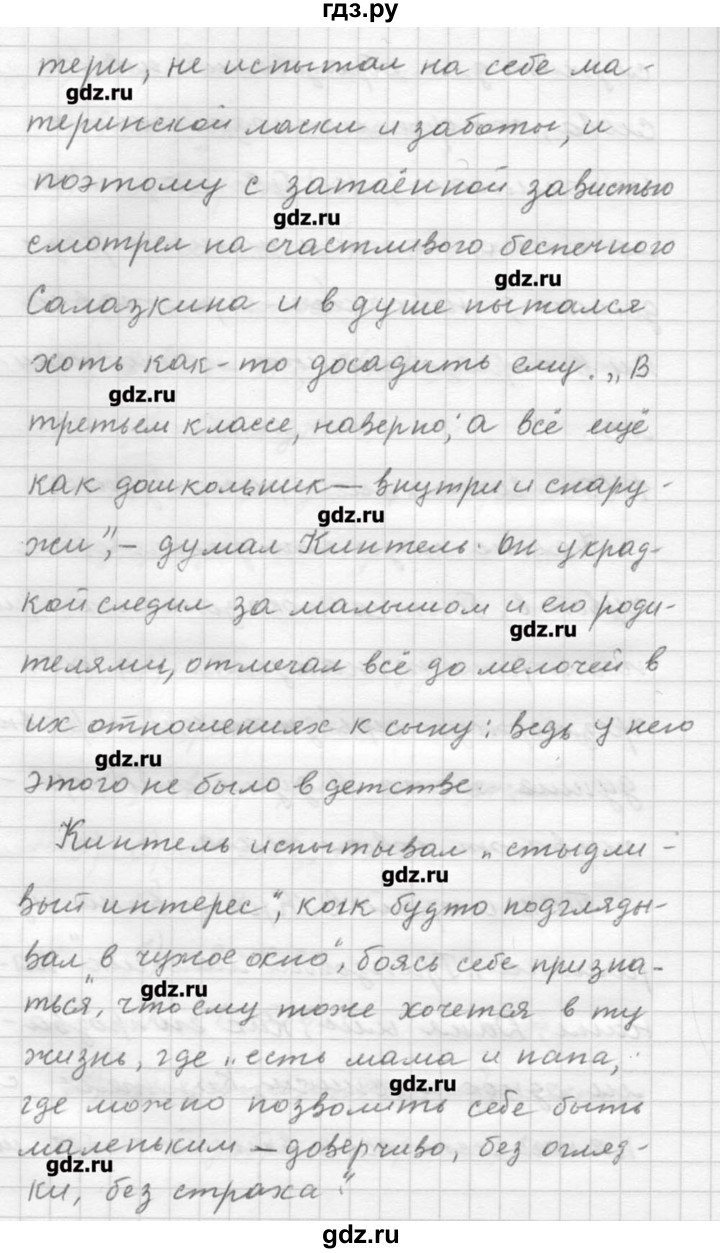 гдз.ру
тери, не испытал на себе ма-
gdz.ru
теринской ласки и заботы, и
поэтому с затаённой завистью
gdz.ru
смотрел на счастливого беспечного
gdz.ru
Салазкина и в душе пытался
хоть как-то досадить ему. „В
gdz.ru
третьем классе, наверно, а всё ещё
как дошкольник — внутри и снару-
gdz.ru
жи", - думал Кинтель. Он украд-
кой следил за малышом и его роди-
gdz.ru
телями, отмечал всё до мелочей в
их отношениях к сыну: ведь у него
gdz.ru
этого не было в детстве
Кинтель испытывал „стыдли-
gdz.ru
вый интерес", как будто подгляды-
вал „в чужое окно", боясь себе призна-
gdz.ru
ться", что ему тоже хочется в ту
жизнь, где „есть мама и папа,
gdz.ru
где можно позволить себе быть
маленьким — доверчиво, без огляд-
gdz.ru
ки, без страха".
gdz.ru